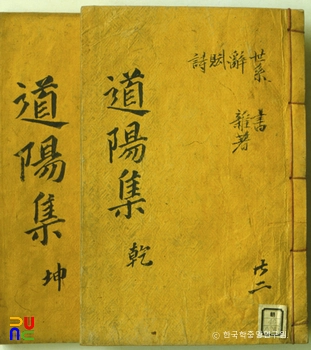 世系
辭
賦
詩
書
雜著
共二
道陽集
乾
道陽集
坤
© 한국학중앙연구원